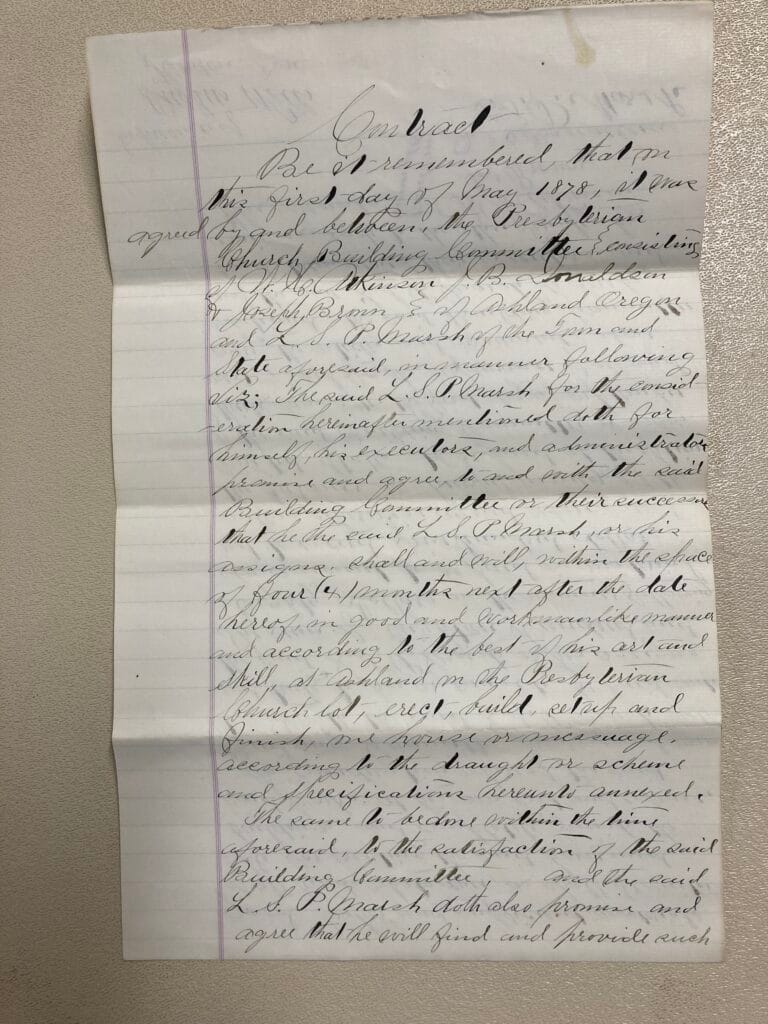 Contract
Be it remembered, that on
this first day of May 1878, it was
agreed by and between, the Presbyterian
Church Building Committee & consisting
of W. H. Atkinson J. B. Donaldson
& Joseph Brown & of Ashland Oregon
and L. S. P. Marsh of the Town and
State aforesaid, in manner following
Viz; The said L. S. P. Marsh for the consid
-eration hereinafter mentioned doth for
himself, his executors, and administrators
promise and agree, to and with the said
Building Committee or their successors
that he the said L. S. P. Marsh, or his
assigns. shall and will, within the space
of four (4) months next after the date
hereof, in good and workmanlike manner
and according to the best of his art and
skill, at Ashland on the Presbyterian
Church lot, erect, build, set up and
finish, one house or message,
according to the draught or scheme
and specifications hereunto annexed.
The same to be done within the time
aforesaid, to the satisfaction of the said
Building Committee, and the said
L. S. P. Marsh doth also promise and
agree that he will find and provide such